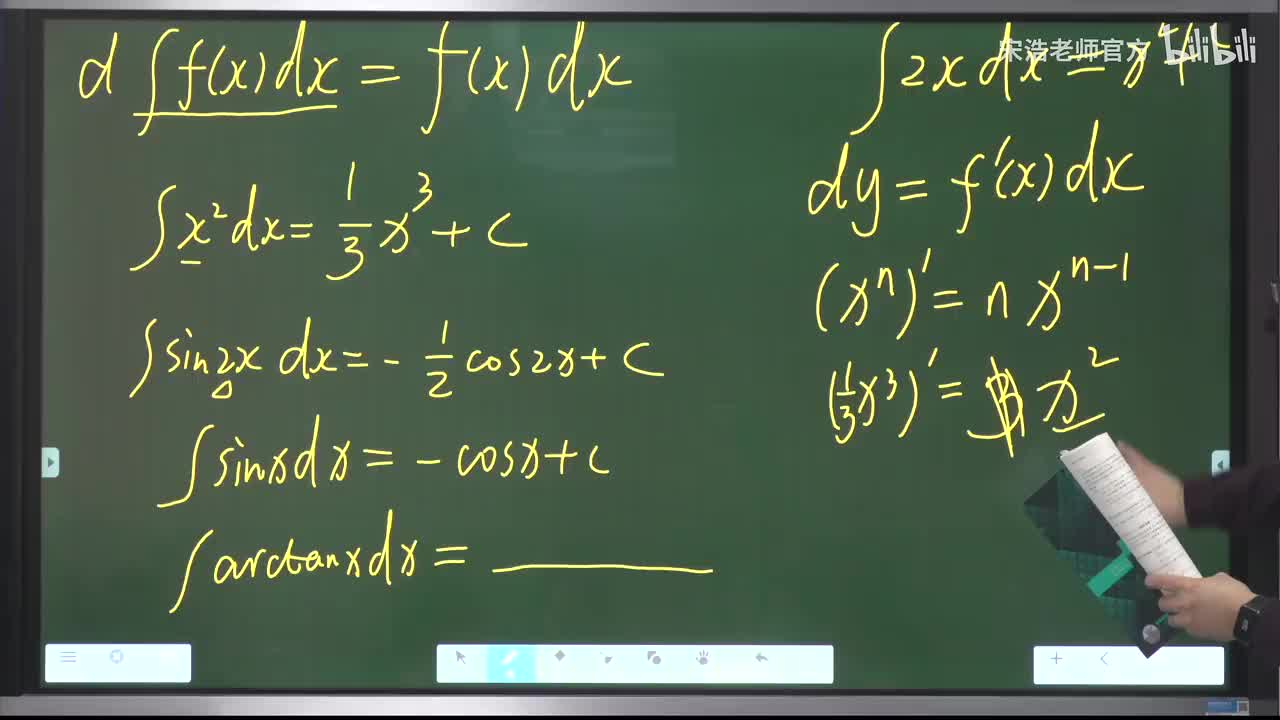 d ∫ f(x) dx = f(x) dx
∫ x² dx = 1/3 x³ + C
∫ sin2x dx = - 1/2 cos2x + C
∫ sinx dx = - cosx + C
∫ arctanx dx =
宋浩老师官方 bilibili
∫ 2x dx =
dy = f'(x) dx
(xⁿ)' = n xⁿ⁻¹
(1/3 x³)' = x²